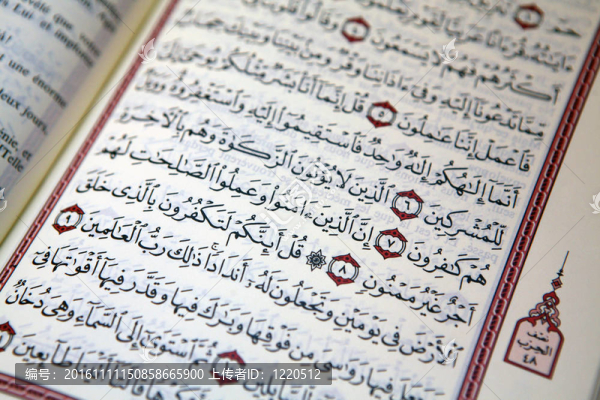 ءَايَٰتُهُۥ قُرْءَانًا عَرَبِيًّا لِّقَوْمٍ
أَكْثَرُهُمْ فَهُمْ لَا يَسْمَعُونَ ٤ وَقَالُوا۟
مِّمَّا تَدْعُونَآ إِلَيْهِ وَفِىٓ ءَاذَانِنَا وَقْرٌ وَمِنۢ بَيْنِنَا وَبَيْنِكَ حِجَابٌ
فَٱعْمَلْ إِنَّنَا عَٰمِلُونَ ٥ قُلْ إِنَّمَآ أَنَا۠ بَشَرٌ مِّثْلُكُمْ يُوحَىٰٓ إِلَىَّ
أَنَّمَآ إِلَٰهُكُمْ إِلَٰهٌ وَٰحِدٌ فَٱسْتَقِيمُوٓا۟ إِلَيْهِ وَٱسْتَغْفِرُوهُ وَوَيْلٌ
لِّلْمُشْرِكِينَ ٦ ٱلَّذِينَ لَا يُؤْتُونَ ٱلزَّكَوٰةَ وَهُم بِٱلْءَاخِرَةِ
هُمْ كَٰفِرُونَ ٧ إِنَّ ٱلَّذِينَ ءَامَنُوا۟ وَعَمِلُوا۟ ٱلصَّٰلِحَٰتِ لَهُمْ
أَجْرٌ غَيْرُ مَمْنُونٍ ٨ ۞ قُلْ أَئِنَّكُمْ لَتَكْفُرُونَ بِٱلَّذِى خَلَقَ
ٱلْأَرْضَ فِى يَوْمَيْنِ وَتَجْعَلُونَ لَهُۥٓ أَندَادًا ۚ ذَٰلِكَ رَبُّ ٱلْعَٰلَمِينَ ٩
وَجَعَلَ فِيهَا رَوَٰسِىَ مِن فَوْقِهَا وَبَٰرَكَ فِيهَا وَقَدَّرَ فِيهَآ أَقْوَٰتَهَا فِىٓ
ٱسْتَوَىٰٓ إِلَى ٱلسَّمَآءِ وَهِىَ دُخَانٌ
طَآئِعِينَ
نصف
الحزب
٤٨
deux jours,
编号:20161111150858665900 上传者ID:1220512